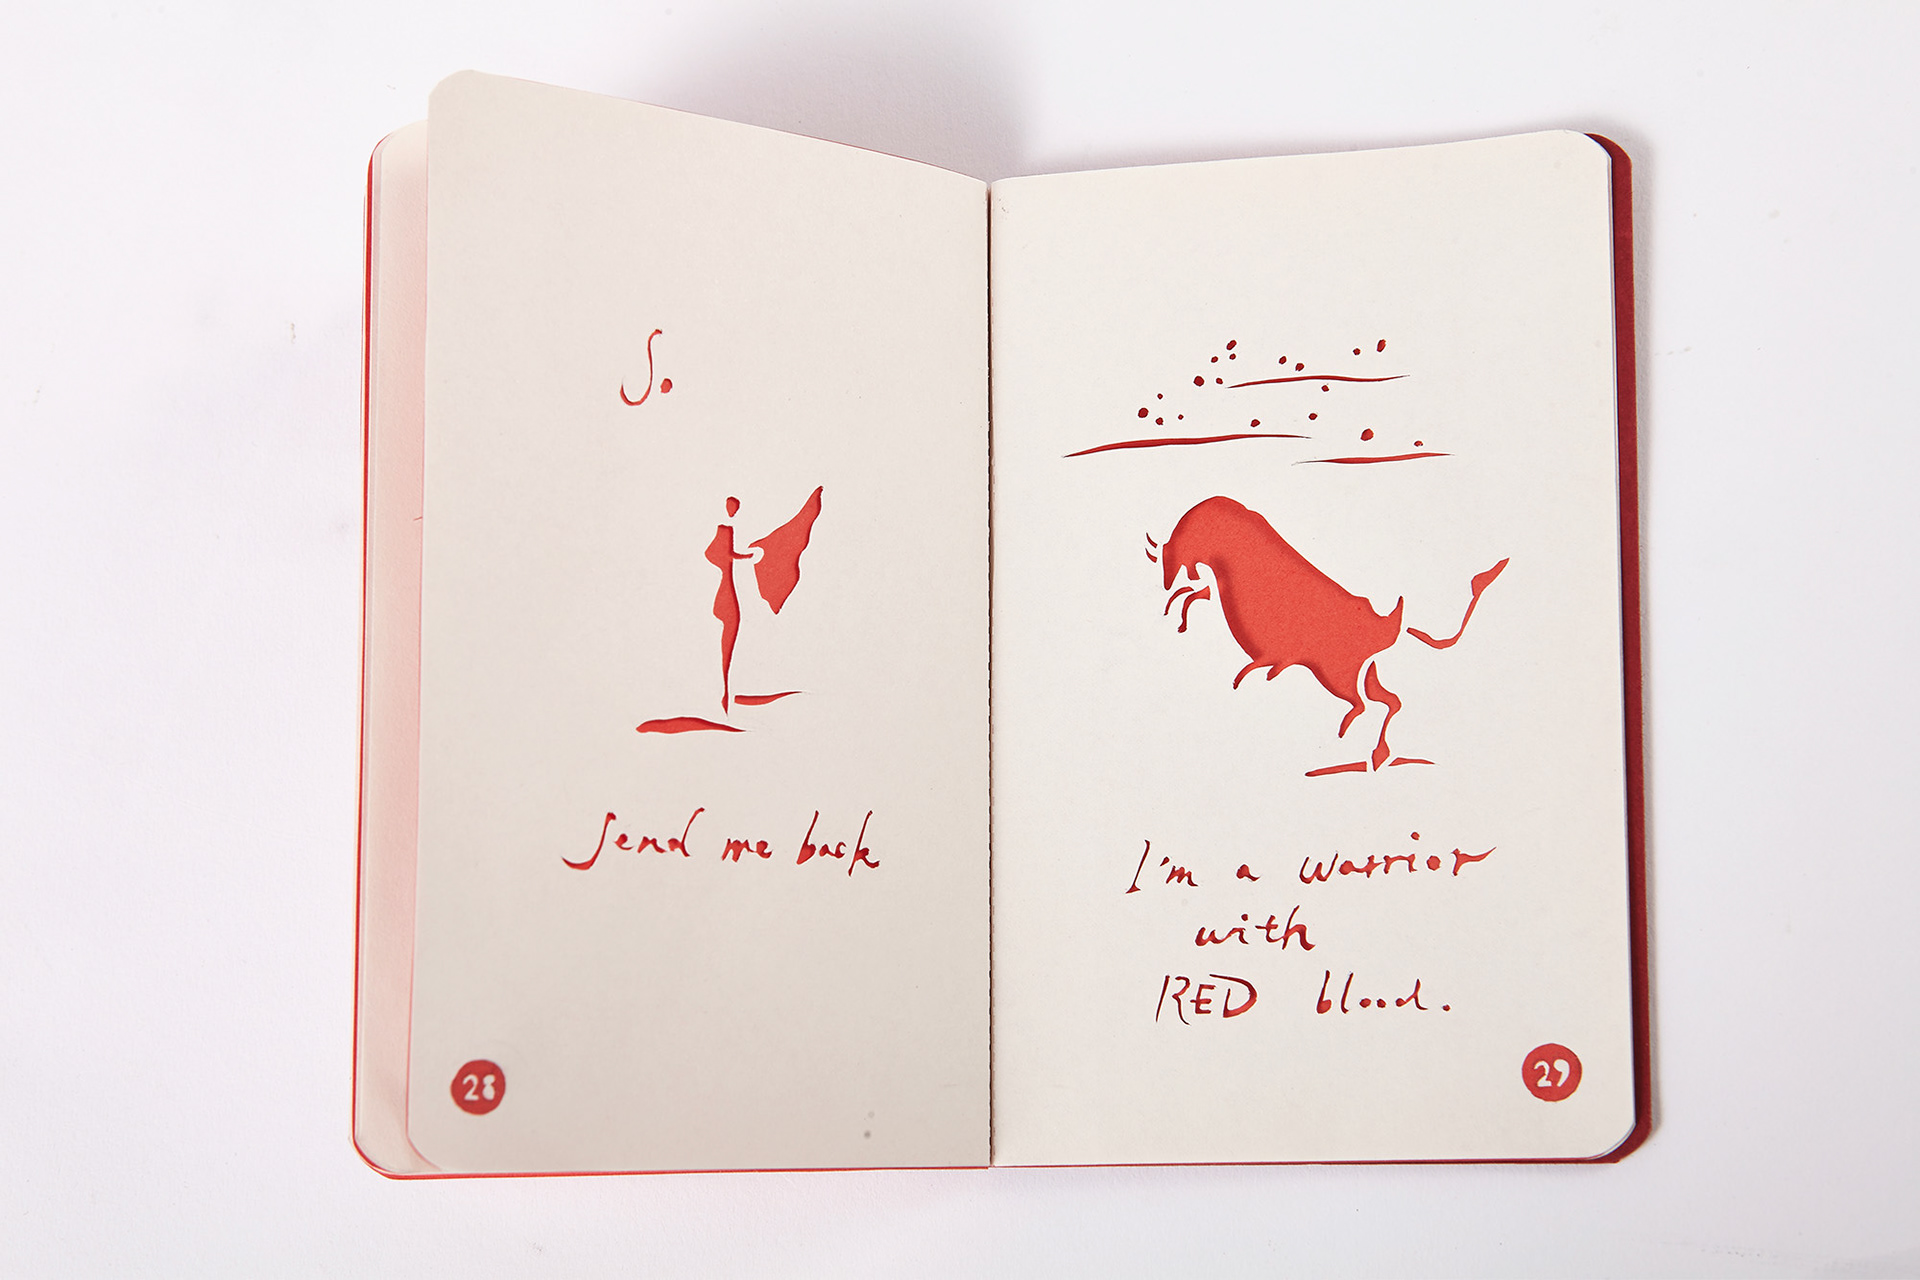 So
Send me back
28
I'm a warrior
with
RED blood.
29